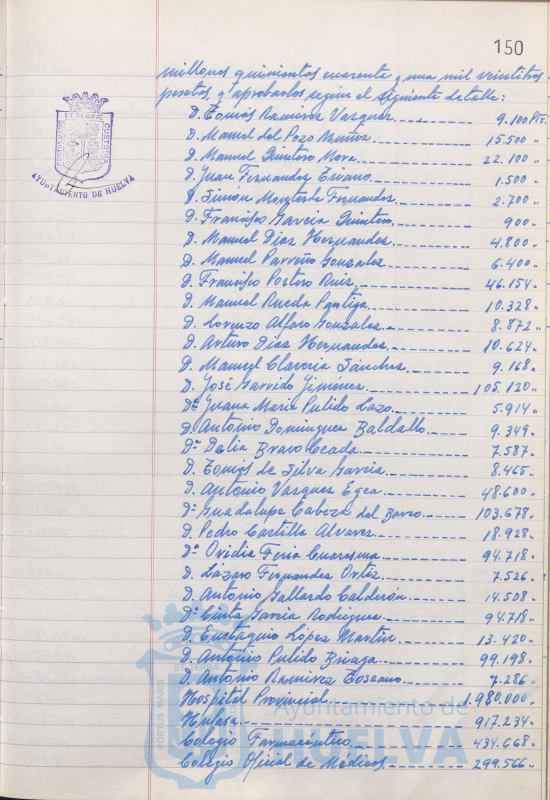 150
millones quinientos cuarenta y una mil veintitres
pesetas, y aprobarlos según el siguiente detalle:
D. Tomás Ramirez Vazquez 9.100 Pts.
D. Manuel del Pozo Muñoz 15.500 "
D. Manuel Quintero Mora 22.100 "
D. Juan Fernandez 1.500 "
D. Simón Fernandez 2.700 "
D. Francisco Garcia Quintero 900 "
D. Manuel Diaz Hernandez 4.800 "
D. Manuel Parreño Gonzalez 6.400 "
D. Francisco Portero Ruiz 46.154 "
D. Manuel Rueda Pantiga 10.328 "
D. Lorenzo Alfaro Gonzalez 8.872 "
D. Arturo Diaz Hernandez 10.624 "
D. Manuel Claveria Sánchez 9.168 "
D. José Garrido Jiménez 105.120 "
Dª Juana Maria Pulido Lazo 5.914 "
D. Antonio Dominguez Baldallo 9.349 "
Dª Dalia Bravo Ceada 7.587 "
D. Tomás de Silva Garcia 8.465 "
D. Antonio Vazquez Egea 48.600 "
Dª Guadalupe Cabeza del Barco 103.678 "
D. Pedro Castilla Alvarez 18.928 "
Dª Ovidia Feria Cuaresma 94.718 "
D. Lázaro Fernandez Ortiz 7.526 "
D. Antonio Gallardo Calderón 14.508 "
Dª Cinta Garcia Rodriguez 94.718 "
D. Eustaquio López Martin 13.420 "
D. Antonio Pulido Bizaga 99.198 "
D. Antonio Ramirez Toscano 7.286 "
Hospital Provincial 1.980.000 "
Hufasa 917.234 "
Colegio Farmaceutico 434.668 "
Colegio Oficial de Médicos 299.566 "
CUSTODIA
AYUNTAMIENTO DE HUELVA
PORTUS MARIS
Ayuntamiento de
HUELVA